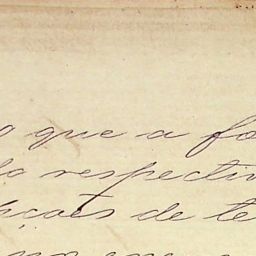 o que a fo
lo respectiv
nçoes de te